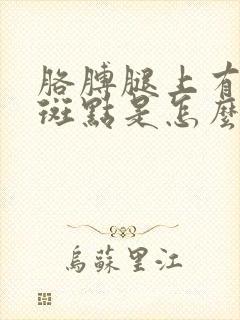 胳膊腿上有
斑點是怎麼
烏蘇里江